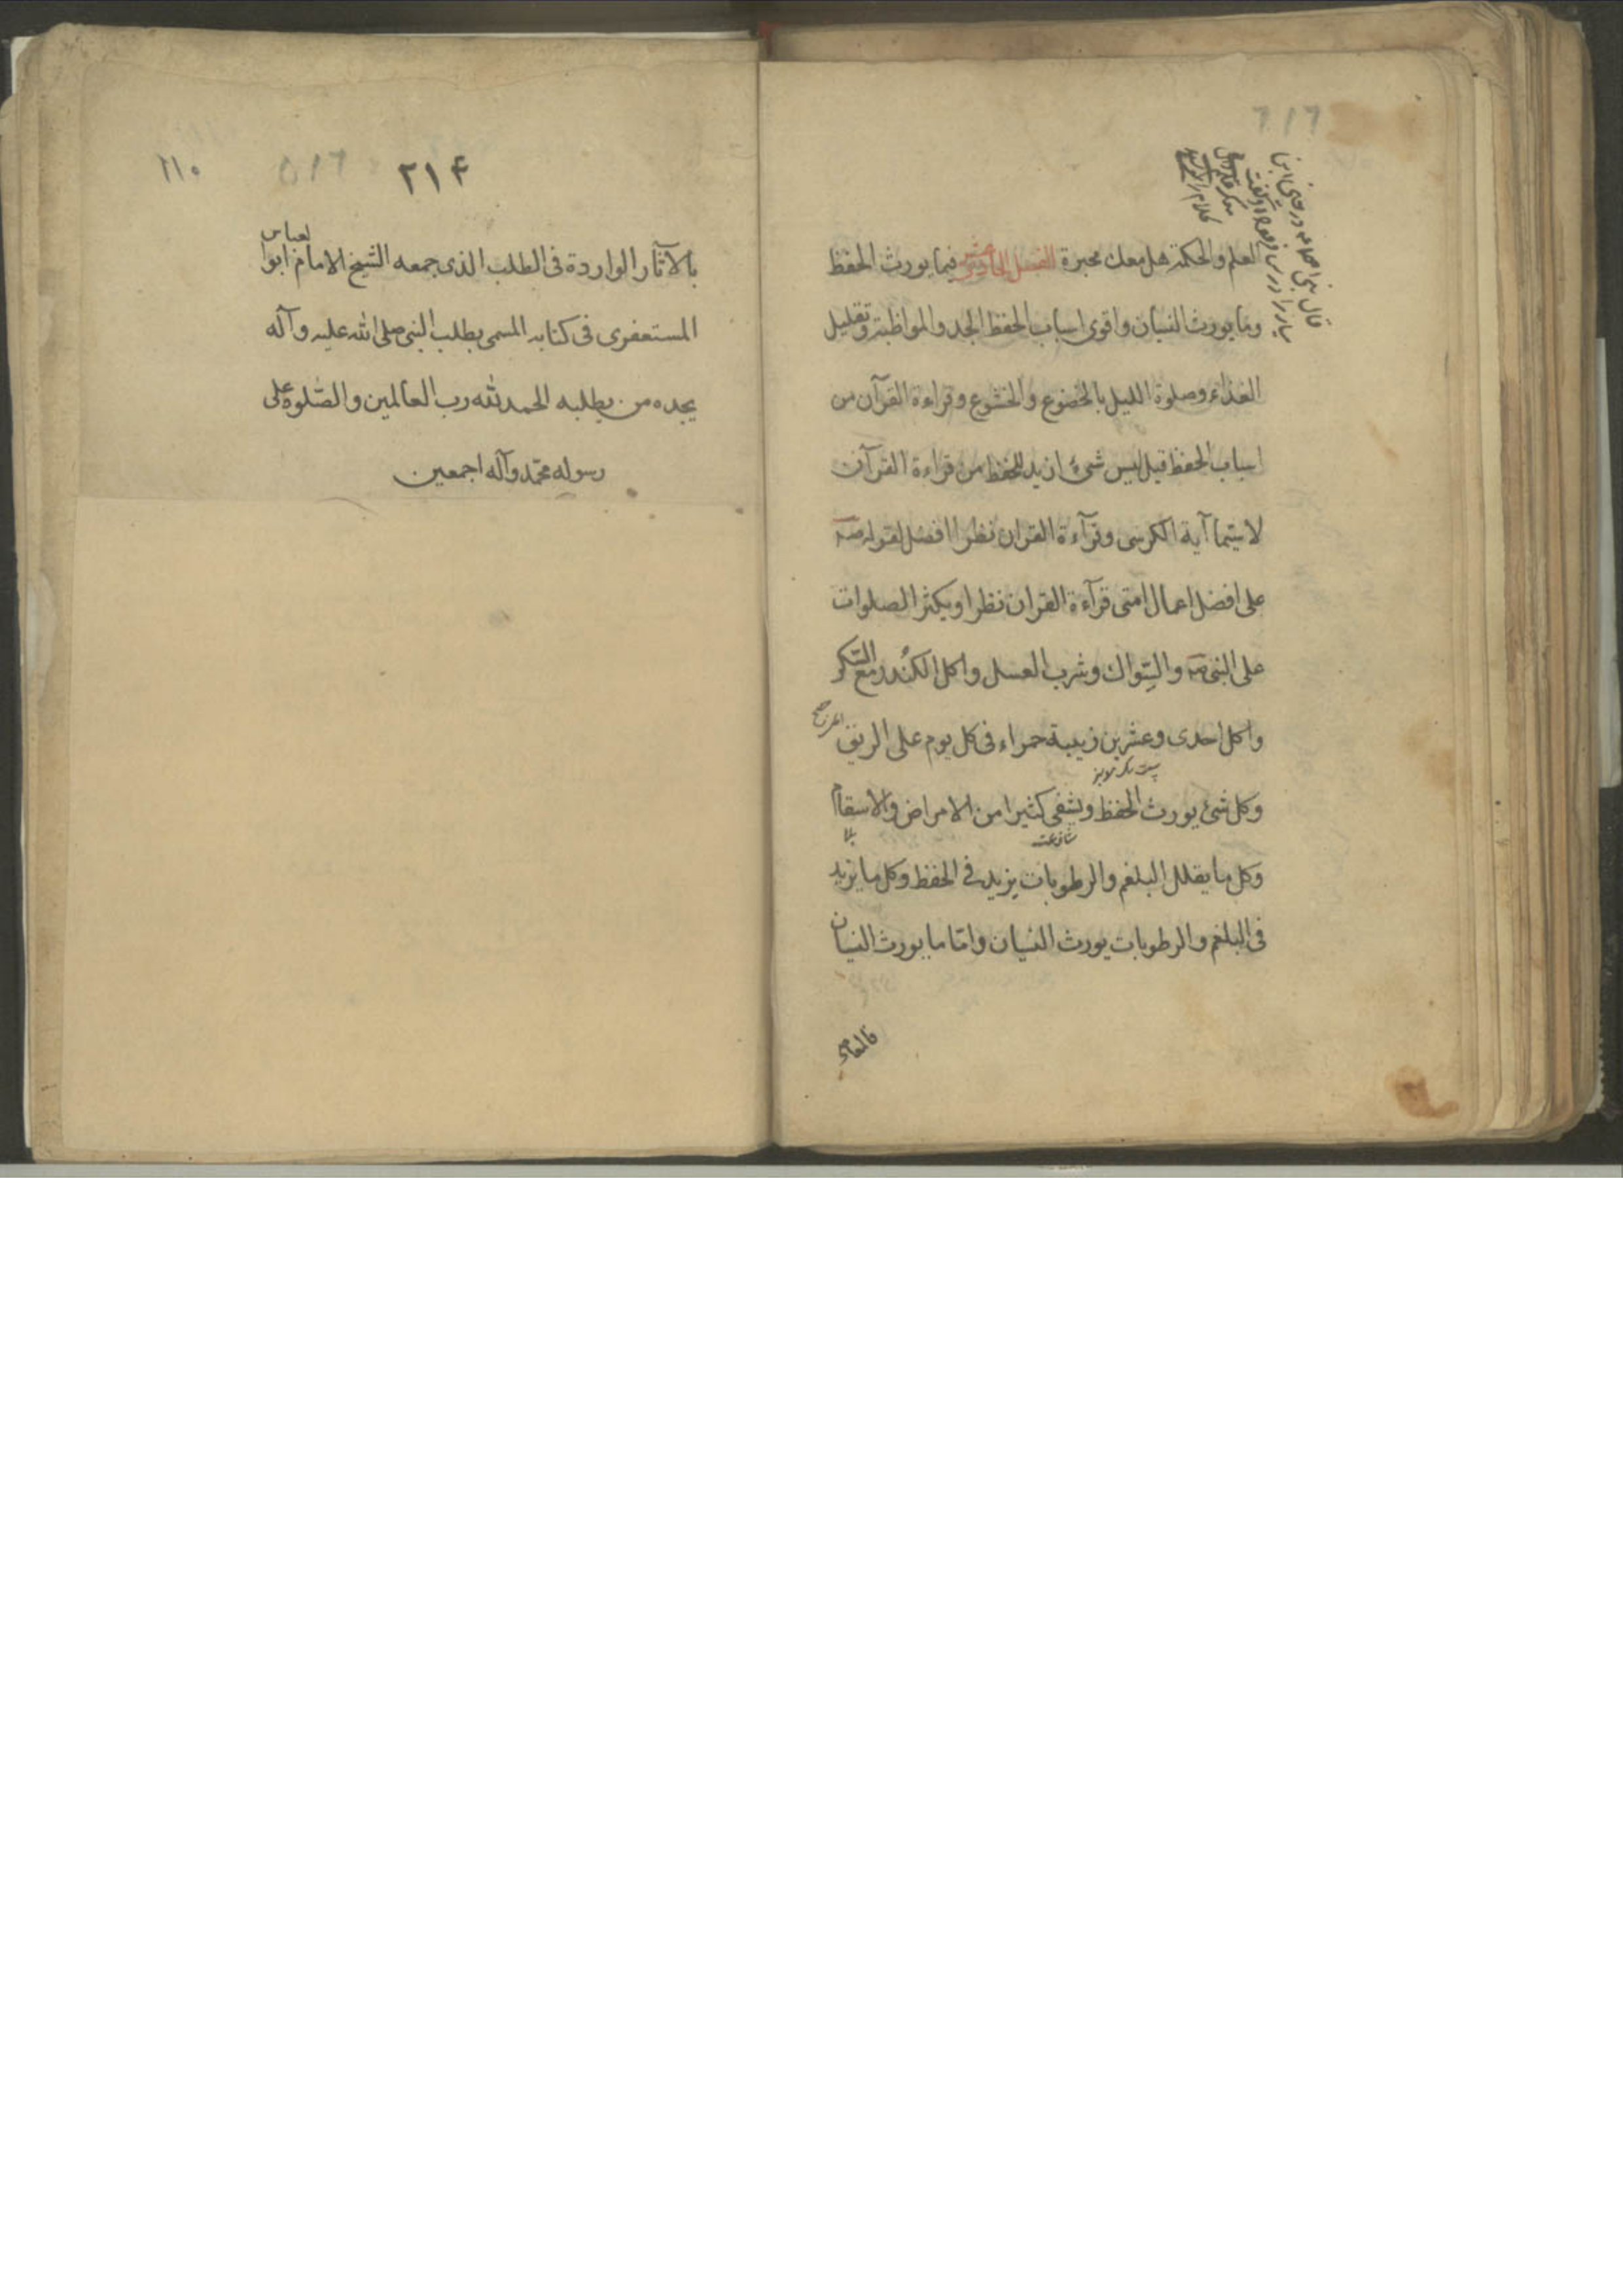 العلم والحكمة هل معك محبرة الفصل الحادي عشر فيما يورث الحفظ
وما يورث النسيان واقوى اسباب الحفظ الجد والمواظبة وتقليل
الغذاء وصلوة الليل بالخضوع والخشوع وقراءة القرآن من
اسباب الحفظ قيل ليس شئ ازيد للحفظ من قراءة القرآن
لا سيّما آية الكرسى وقرآءة القران نظرا افضل لقوله
على افضل اعمال امتى قرآءة القران نظرا ويكثر الصلوات
على النبى والسِّواك وشرب العسل واكل الكُندر مع السّكر
واكل احدى وعشرين زبيبة حمراء فى كل يوم على الريق
وكل شئ يورث الحفظ ويشفى كثيرا من الامراض والاسقام
وكل ما يقلل البلغم والرطوبات يزيد فى الحفظ وكل ما يزيد
فى البلغم والرطوبات يورث النسيان وامّا ما يورث النسيان
فالمعاصى
۱۱۰
۵۱۶
۲۱۴
بالآثار الواردة فى الطلب الذى جمعه الشيخ الامام ابو العباس
المستغفرى فى كتابه المسمى بطلب النبى صلى الله عليه وآله
يجده من يطلبه الحمد لله رب العالمين والصّلوة على
رسوله محمّد وآله اجمعين